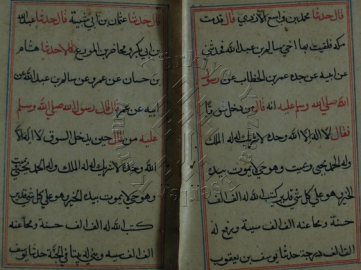 قال حدثنا محمد بن واسع الازدي قال قدمت
مكة فلقيت بها اخي سالم بن عبد الله فحدثني
عن ابيه عن جده عمر بن الخطاب عن رسول
الله صلي الله وسلم عليه انه قال من دخل سوقا
فقال لا اله الا الله وحده لا شريك له له الملك
وله الحمد يحيي ويميت وهو حي لا يموت بيده
الخير وهو علي كل شي قدير كتب الله له الف
الف حسنة ومحا عنه الف الف سيئة ورفع له
الف الف درجة حدثنا يوسف بن يعقوب
قال حدثنا عثمان بن قال حدثنا عبد الله
بن بكر و محاضر بن المورع قالا حدثنا هشام
بن حسان عن عمرو عن سالم بن عبد الله عن
ابيه عن عمر قال قال رسول الله صلي الله وسلم
عليه من قال حين يدخل السوق لا اله الا
الله وحده لا شريك له له الملك وله الحمد يحيي
وهو حي لا يموت بيده الخير وهو علي كل شي قدير
كتب الله له الف الف حسنة ومحا عنه
الف الف سيئة وبني له بيتا في الجنة حدثنا يوسف